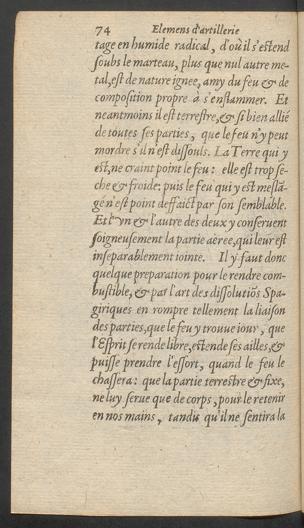 74 Elemens d'artillerie
tage en humide radical, d'où il s'estend
soubs le marteau, plus que nul autre me-
tal, est de nature ignee, amy du feu & de
composition propre à s'enflammer. Et
neantmoins il est terrestre, & si bien allié
de toutes ses parties, que le feu n'y peut
mordre s'il n'est dissouls. La Terre qui y
est, ne craint point le feu: elle est trop se-
che & froide: puis le feu qui y est meslā-
gé n'est point deffaict par son semblable.
Et l'vn & l'autre des deux y conseruent
soigneusement la partie aëree, qui leur est
inseparablement iointe. Il y faut donc
quelque preparation pour le rendre com-
bustible, & par l'art des dissolutiōs Spa-
giriques en rompre tellement la liaison
des parties, que le feu y trouue iour, que
l'Esprit se rende libre, estende ses ailles, &
puisse prendre l'essort, quand le feu le
chassera: que la partie terrestre & fixe,
ne luy serue que de corps, pour le retenir
en nos mains, tandis qu'il ne sentira la